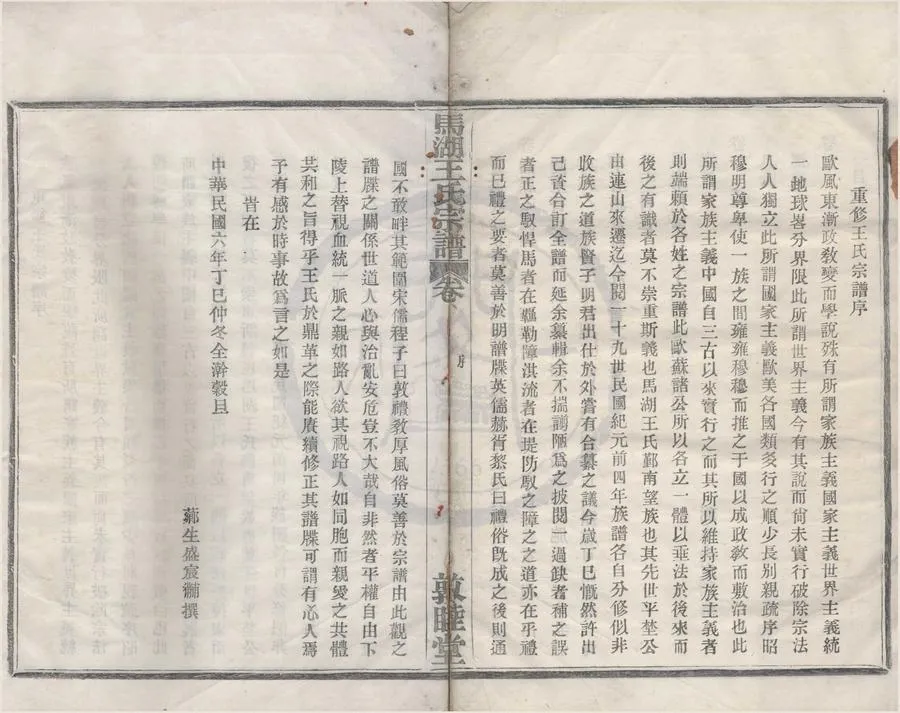 重修王氏宗譜序
歐風東漸政敎變而學說殊有所謂家族主義國家主義世界主義統
一地球畧分界限此所謂世界主義今有其說而尚未實行破除宗法
人人獨立此所謂國家主義歐美各國類多行之順少長別親疏序昭
穆明尊卑使一族之間雍雍穆穆而推之于國以成政敎而敷治也此
所謂家族主義中國自三古以來實行之而其所以維持家族主義者
則端賴於各姓之宗譜此歐蘇諸公所以各立一體以垂法於後來而
後之有識者莫不崇重斯義也馬湖王氏鄞南望族也其先世平埜公
由連山來遷迄今閱一十九世民國紀元前四年族譜各自分修似非
收族之道族賢子明君出仕於外嘗有合纂之議今歲丁巳慨然許出
己資合訂全譜而延余纂輯余不揣謭陋爲之披閱 過缺者補之誤
者正之馭悍馬者在羈勒障洪流者在堤防馭之障之之道亦在乎禮
而已禮之要者莫善於明譜牒英儒赫胥黎氏曰禮俗旣成之後則通
馬湖王氏宗譜
卷
序
敦睦堂
國不敢畔其範圍宋儒程子曰敦禮敎厚風俗莫善於宗譜由此觀之
譜牒之關係世道人心與治亂安危豈不大哉自非然者平權自由下
陵上替視血統一脈之親如路人欲其視路人如同胞而親愛之共體
共和之旨得乎王氏於鼎革之際能賡續修正其譜牒可謂有心人焉
子有感於時事故爲言之如是
旹在
中華民國六年丁巳仲冬全澣穀旦
薌生盛宸黼撰